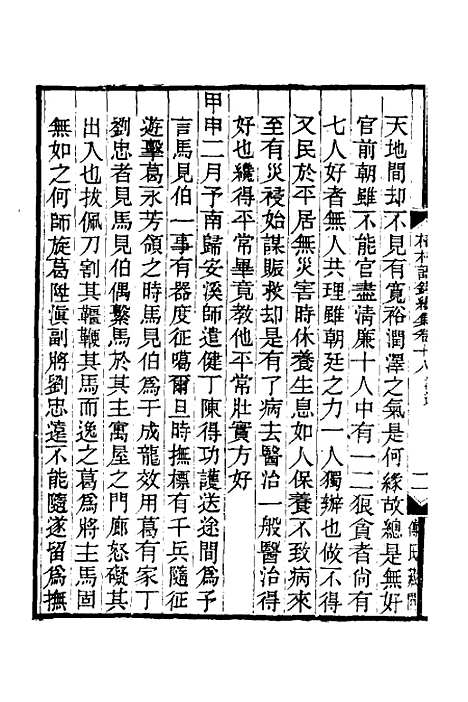 天地間却不見有寬裕潤澤之氣是何緣故總是無好
官前朝雖不能官盡清廉十人中有一二狼貪者尙有
七人好者無人共理雖朝廷之力一人獨辦也做不得
又民於平居無災害時休養生息如人保養不致病來
至有災祲始謀賑救却是有了病去醫治一般醫治得
好也纔得平常畢竟教他平常壯實方好
甲申二月予南歸安溪師遣健丁陳得功護送途間爲予
言馬見伯一事有器度征噶爾旦時撫標有千兵隨征
遊擊葛永芳領之時馬見伯爲千成龍效用葛有家丁
劉忠者見馬見伯偶繫馬於其主寓屋之門廊怒礙其
出入也拔佩刀割其韁鞭其馬而逸之葛爲將主馬固
無如之何師旋葛陞滇副將劉忠遠不能隨遂留爲撫
榕村語錄續集卷十八
傅氏藏園